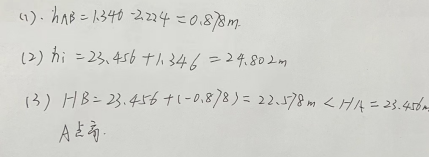 (1). hAB=1.346-2.224=0.878m.
(2) hi=23.456+1.346=24.802m
(3) HB=23.456+(-0.878)=22.578m<HA=23.456m
A点高.